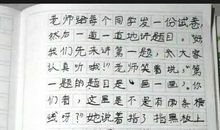 老师给每个同学发一份试卷,
然后一道一道地讲题目。"好
我们先来讲第一题,大家
认真听哦!"老师笑着说,"第
一题的题目是"画一画",你
们看,这里是不是有两条横
线呀?"她说着指了指黑板上